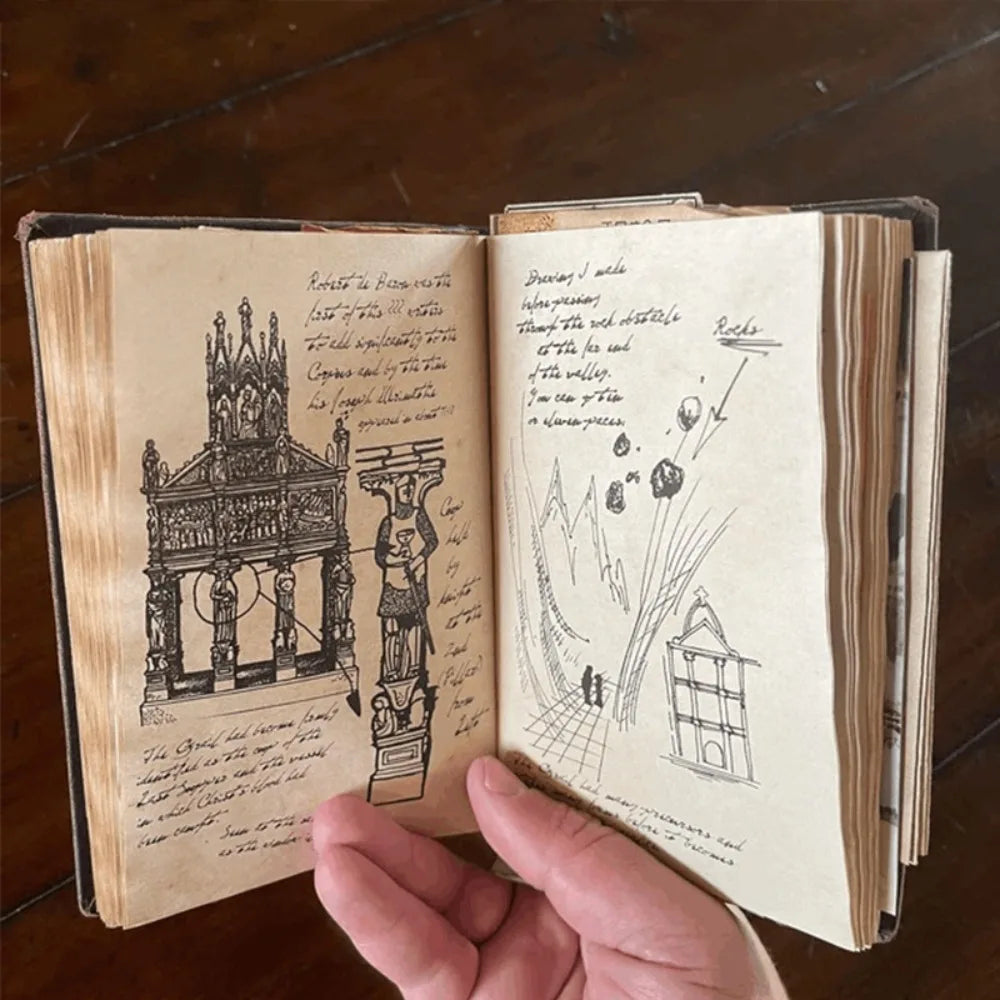 Robert de Boron was the
first of this ??? writers
to add significantly to the
Corpus and by the time
his Joseph
appeared in about
Cup
held
by
knight
on the
2nd
Pillar
from
Left
The Grail had become firmly
identified as the cup of the
Last Supper and the vessel
in which Christ's blood had
been caught.
Seen to the
as the
Drawing I made
before passing
through the rock obstacle
at the far end
of the valley.
You can go ten
or eleven paces.
Rocks
The Grail had many precursors and
before it becomes